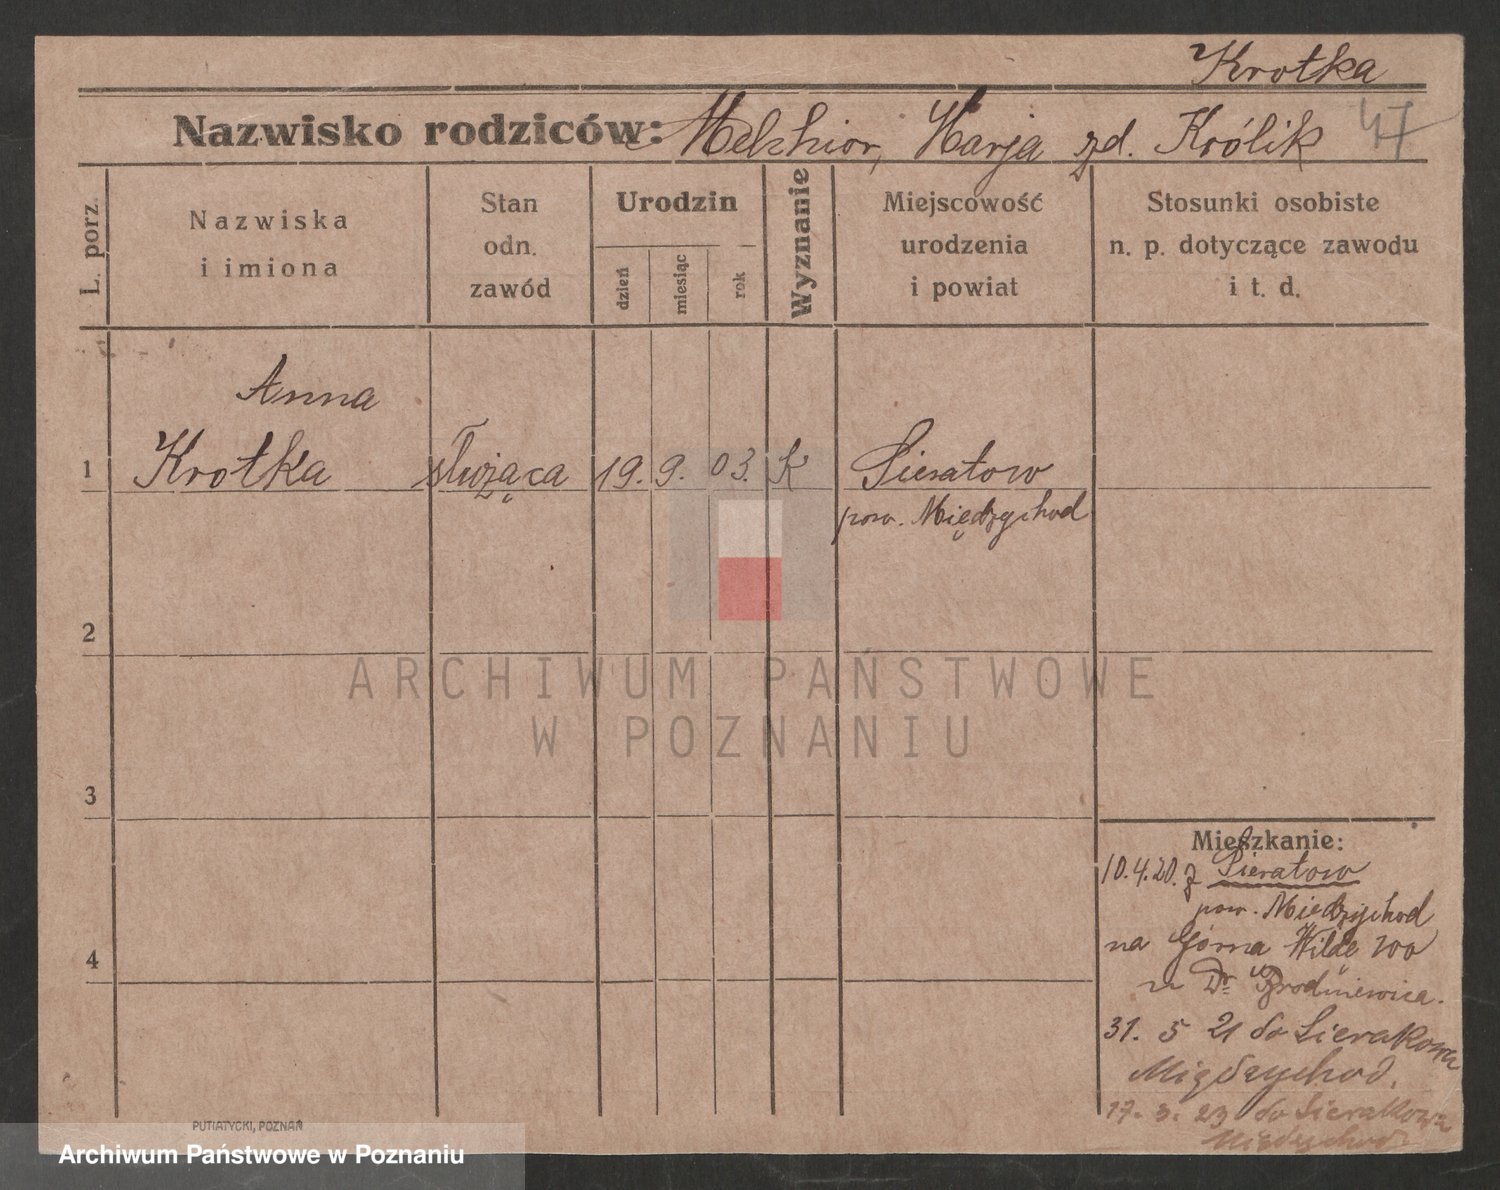 Krotka
Nazwisko rodziców: Melchior, Marja zd. Królik 47
L. porz.
Nazwiska
i imiona
Stan
odn.
zawód
Urodzin
dzień
miesiąc
rok
Wyznanie
Miejscowość
urodzenia
i powiat
Stosunki osobiste
n. p. dotyczące zawodu
i t. d.
Anna
1 Krotka służąca 19. 9. 03. K Sieratow
pow. Międzychod
2
ARCHIWUM PAŃSTWOWE
W POZNANIU
3
Mieszkanie:
10.4.20. z Sieratow
pow. Międzychod
4
na Górna Wilde 100
u Dr
31. 5 21 do Sierakowa
Międzychod.
17. 3. 23 do Sierakowa
Międzychod
PUTIATYCKI, POZNAŃ
Archiwum Państwowe w Poznaniu